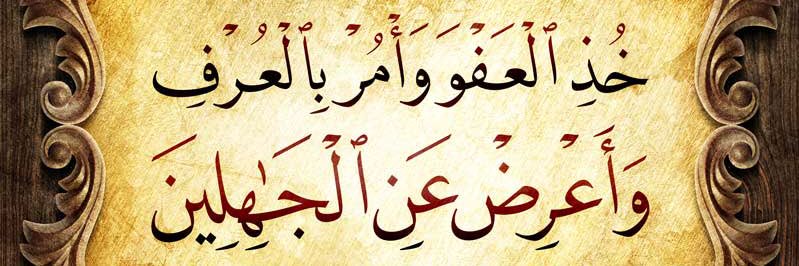 خُذِ ٱلْعَفْوَ وَأْمُرْ بِٱلْعُرْفِ
وَأَعْرِضْ عَنِ ٱلْجَٰهِلِينَ